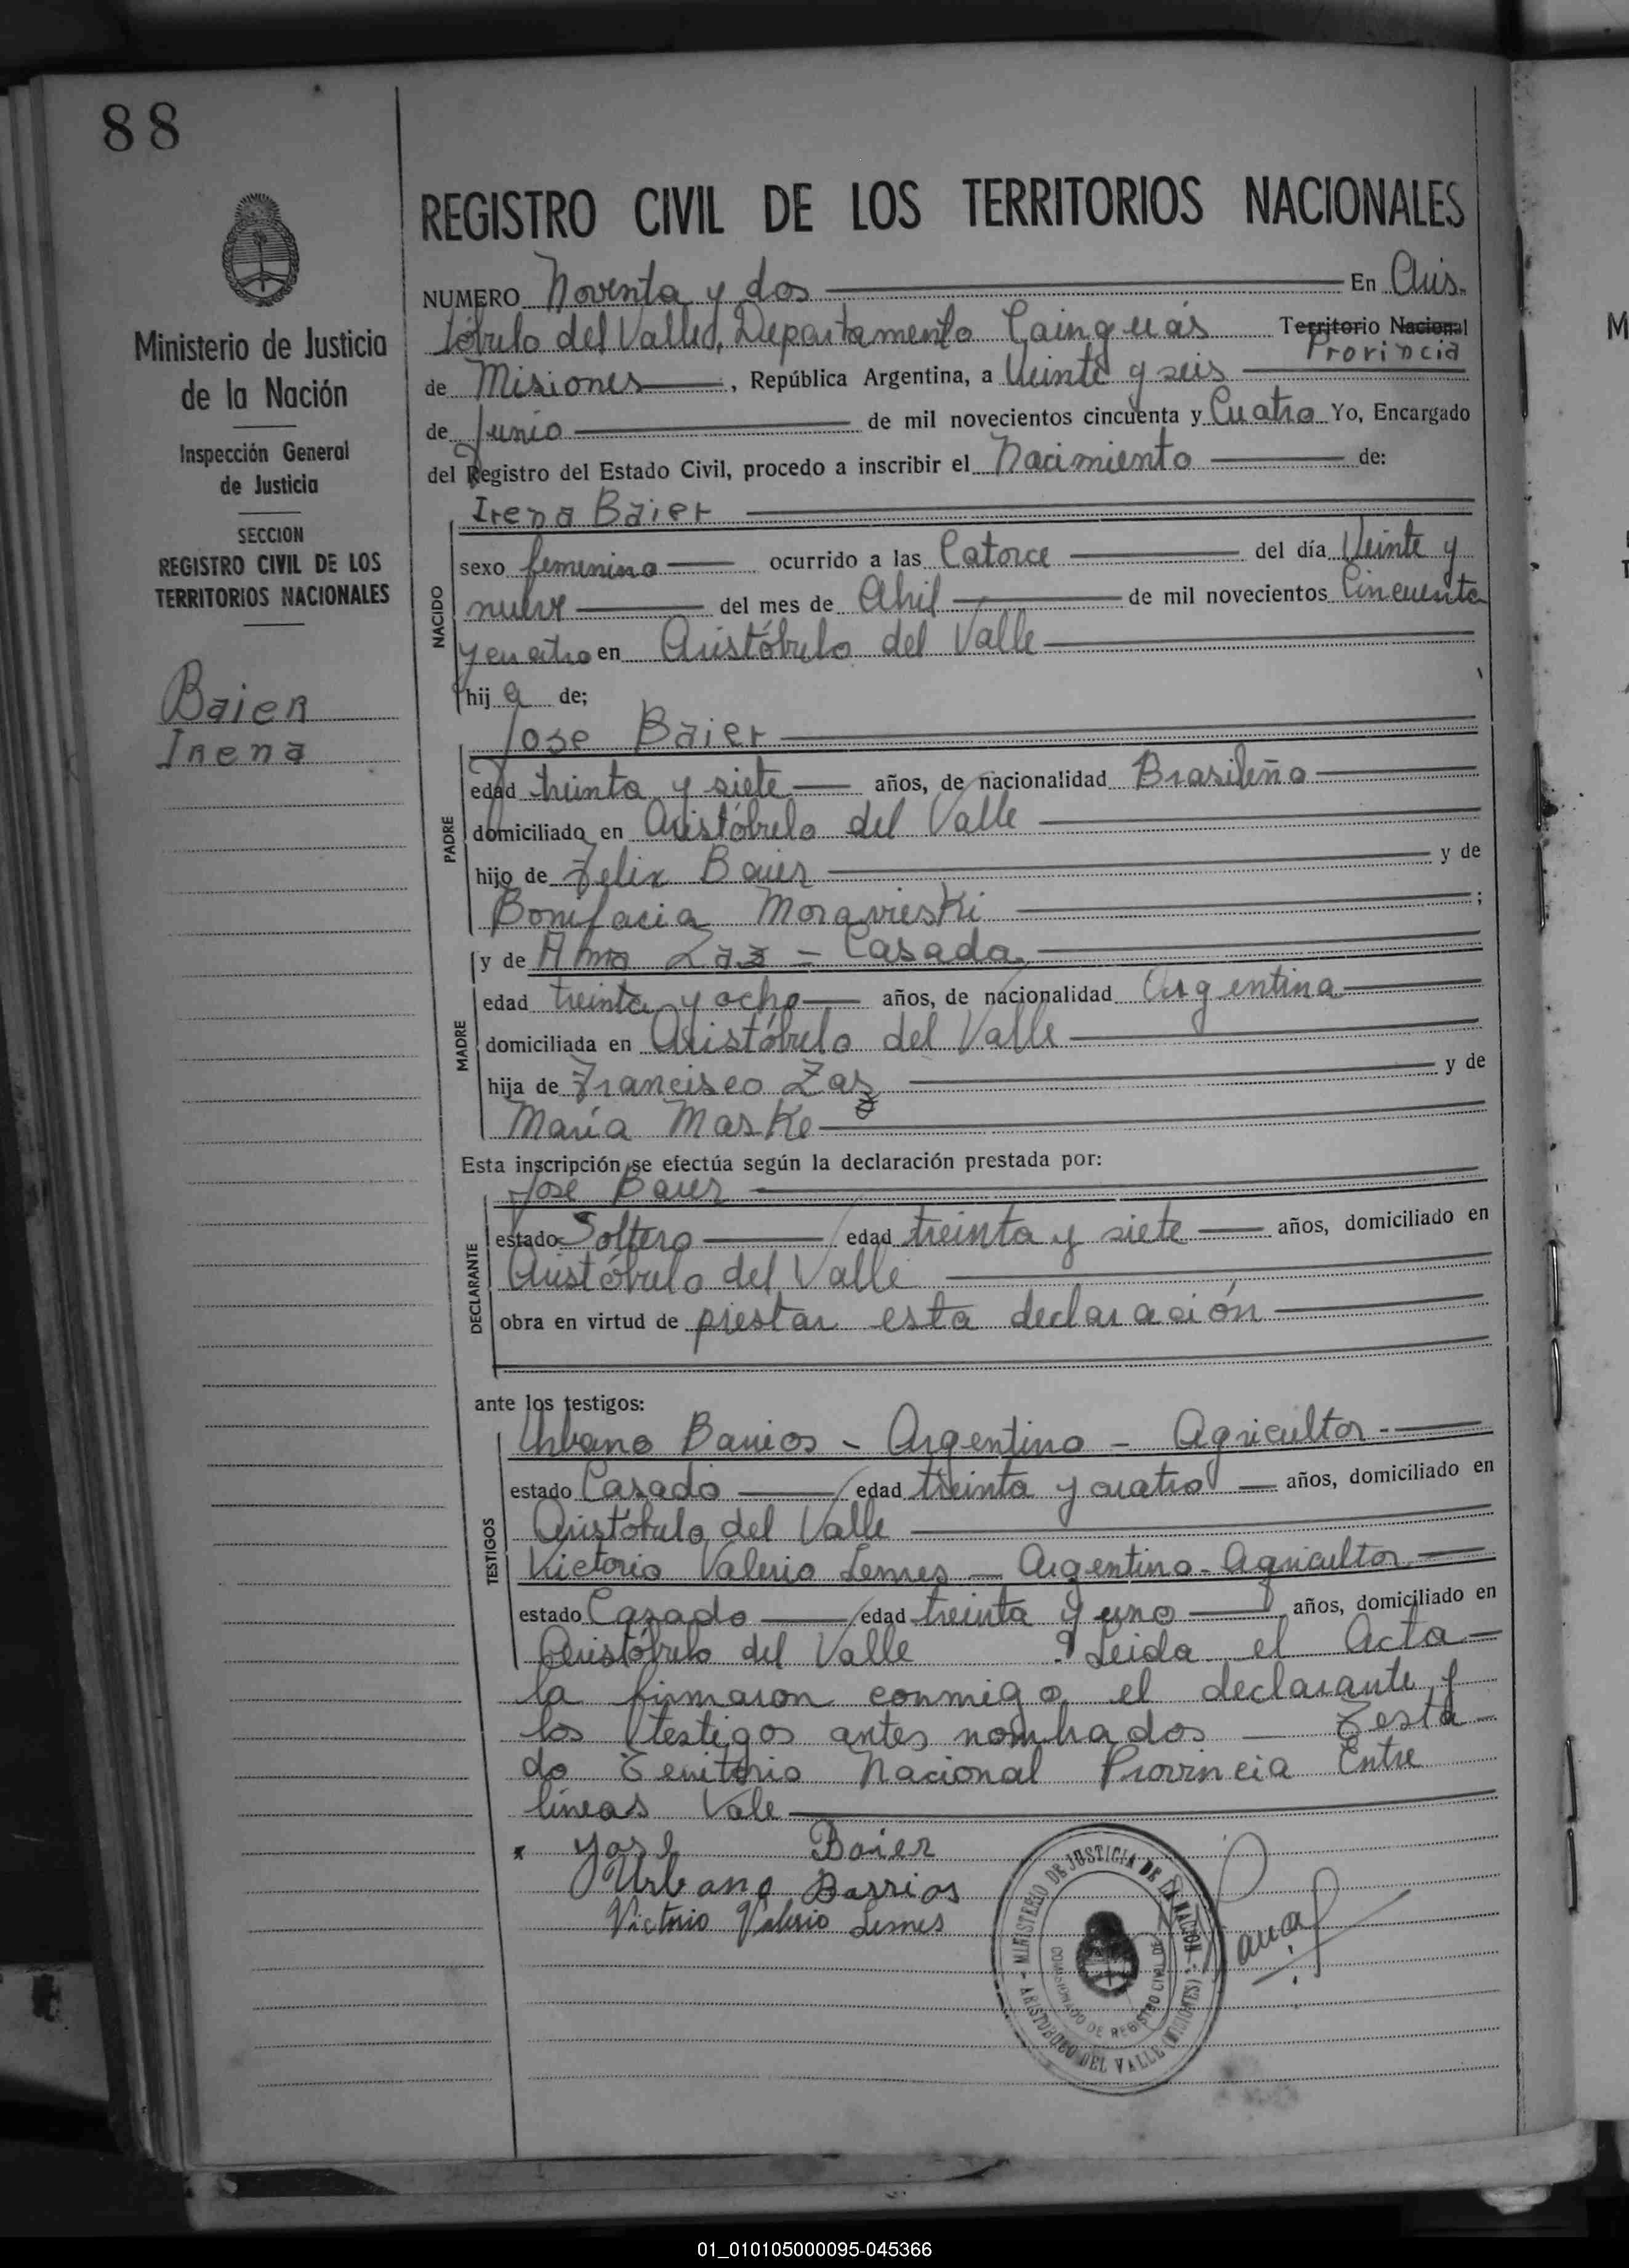 88
REGISTRO CIVIL DE LOS TERRITORIOS NACIONALES
Ministerio de Justicia
de la Nación
Inspección General
de Justicia
SECCION
REGISTRO CIVIL DE LOS
TERRITORIOS NACIONALES
Baier
Irena
NUMERO Noventa y dos En Aris-
tóbulo del Valle, Departamento Cainguás Territorio Nacional
Provincia
de Misiones, República Argentina, a Veinte y seis
de Junio de mil novecientos cincuenta y Cuatro Yo, Encargado
del Registro del Estado Civil, procedo a inscribir el Nacimiento de:
Irena Baier
NACIDO
sexo femenino ocurrido a las Catorce del día Veinte y
nueve del mes de Abril de mil novecientos Cincuenta
y cuatro en Aristóbulo del Valle
hij a de;
Jose Baier
PADRE
edad treinta y siete años, de nacionalidad Brasileña
domiciliado en Aristóbulo del Valle
hijo de Felix Baier y de
Bonifacia Moravieski ;
y de Ana Zaz = Casada
MADRE
edad treinta y ocho años, de nacionalidad Argentina
domiciliada en Aristóbulo del Valle
hija de Francisco Zaz y de
María Maske
Esta inscripción se efectúa según la declaración prestada por:
José Baier
DECLARANTE
estado Soltero edad treinta y siete años, domiciliado en
Aristóbulo del Valle
obra en virtud de prestar esta declaración
ante los testigos:
Urbano Barrios - Argentino - Agricultor -
TESTIGOS
estado Casado edad treinta y cuatro años, domiciliado en
Aristóbulo del Valle
Victorio Valerio Lemes - Argentino - Agricultor
estado Casado edad treinta y uno años, domiciliado en
Aristóbulo del Valle Leida el Acta
la firmaron conmigo el declarante y
los testigos antes nombrados - Testa-
do Territorio Nacional Provincia Entre
líneas Vale
José Baier
Urbano Barrios
Victorio Valerio Lemes
MINISTERIO DE JUSTICIA DE LA NACION
ARISTOBULO DEL VALLE (MISIONES)
DE REGISTRO CIVIL
01_010105000095-045366